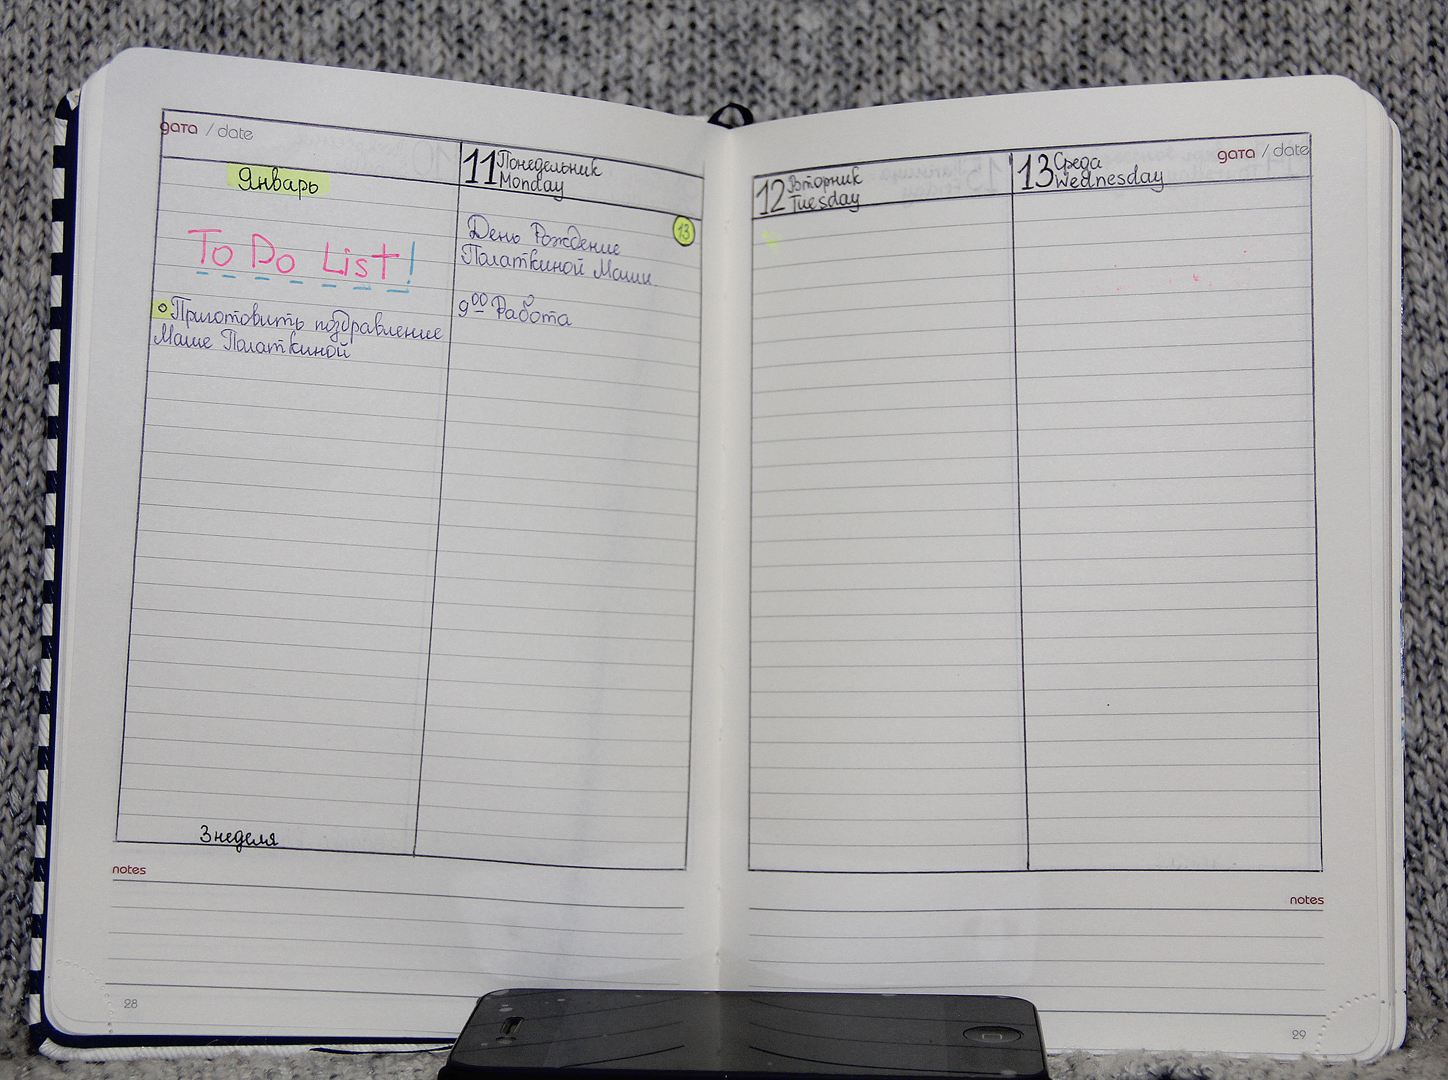 дата / date
Январь
To Do List!
Приготовить поздравление
Маше Палаткиной
3 неделя
notes
28
11 Понедельник
Monday
13
День Рождение
Палаткиной Маши.
9 00 Работа
12 Вторник
Tuesday
13 Среда
Wednesday
дата / date
notes
29